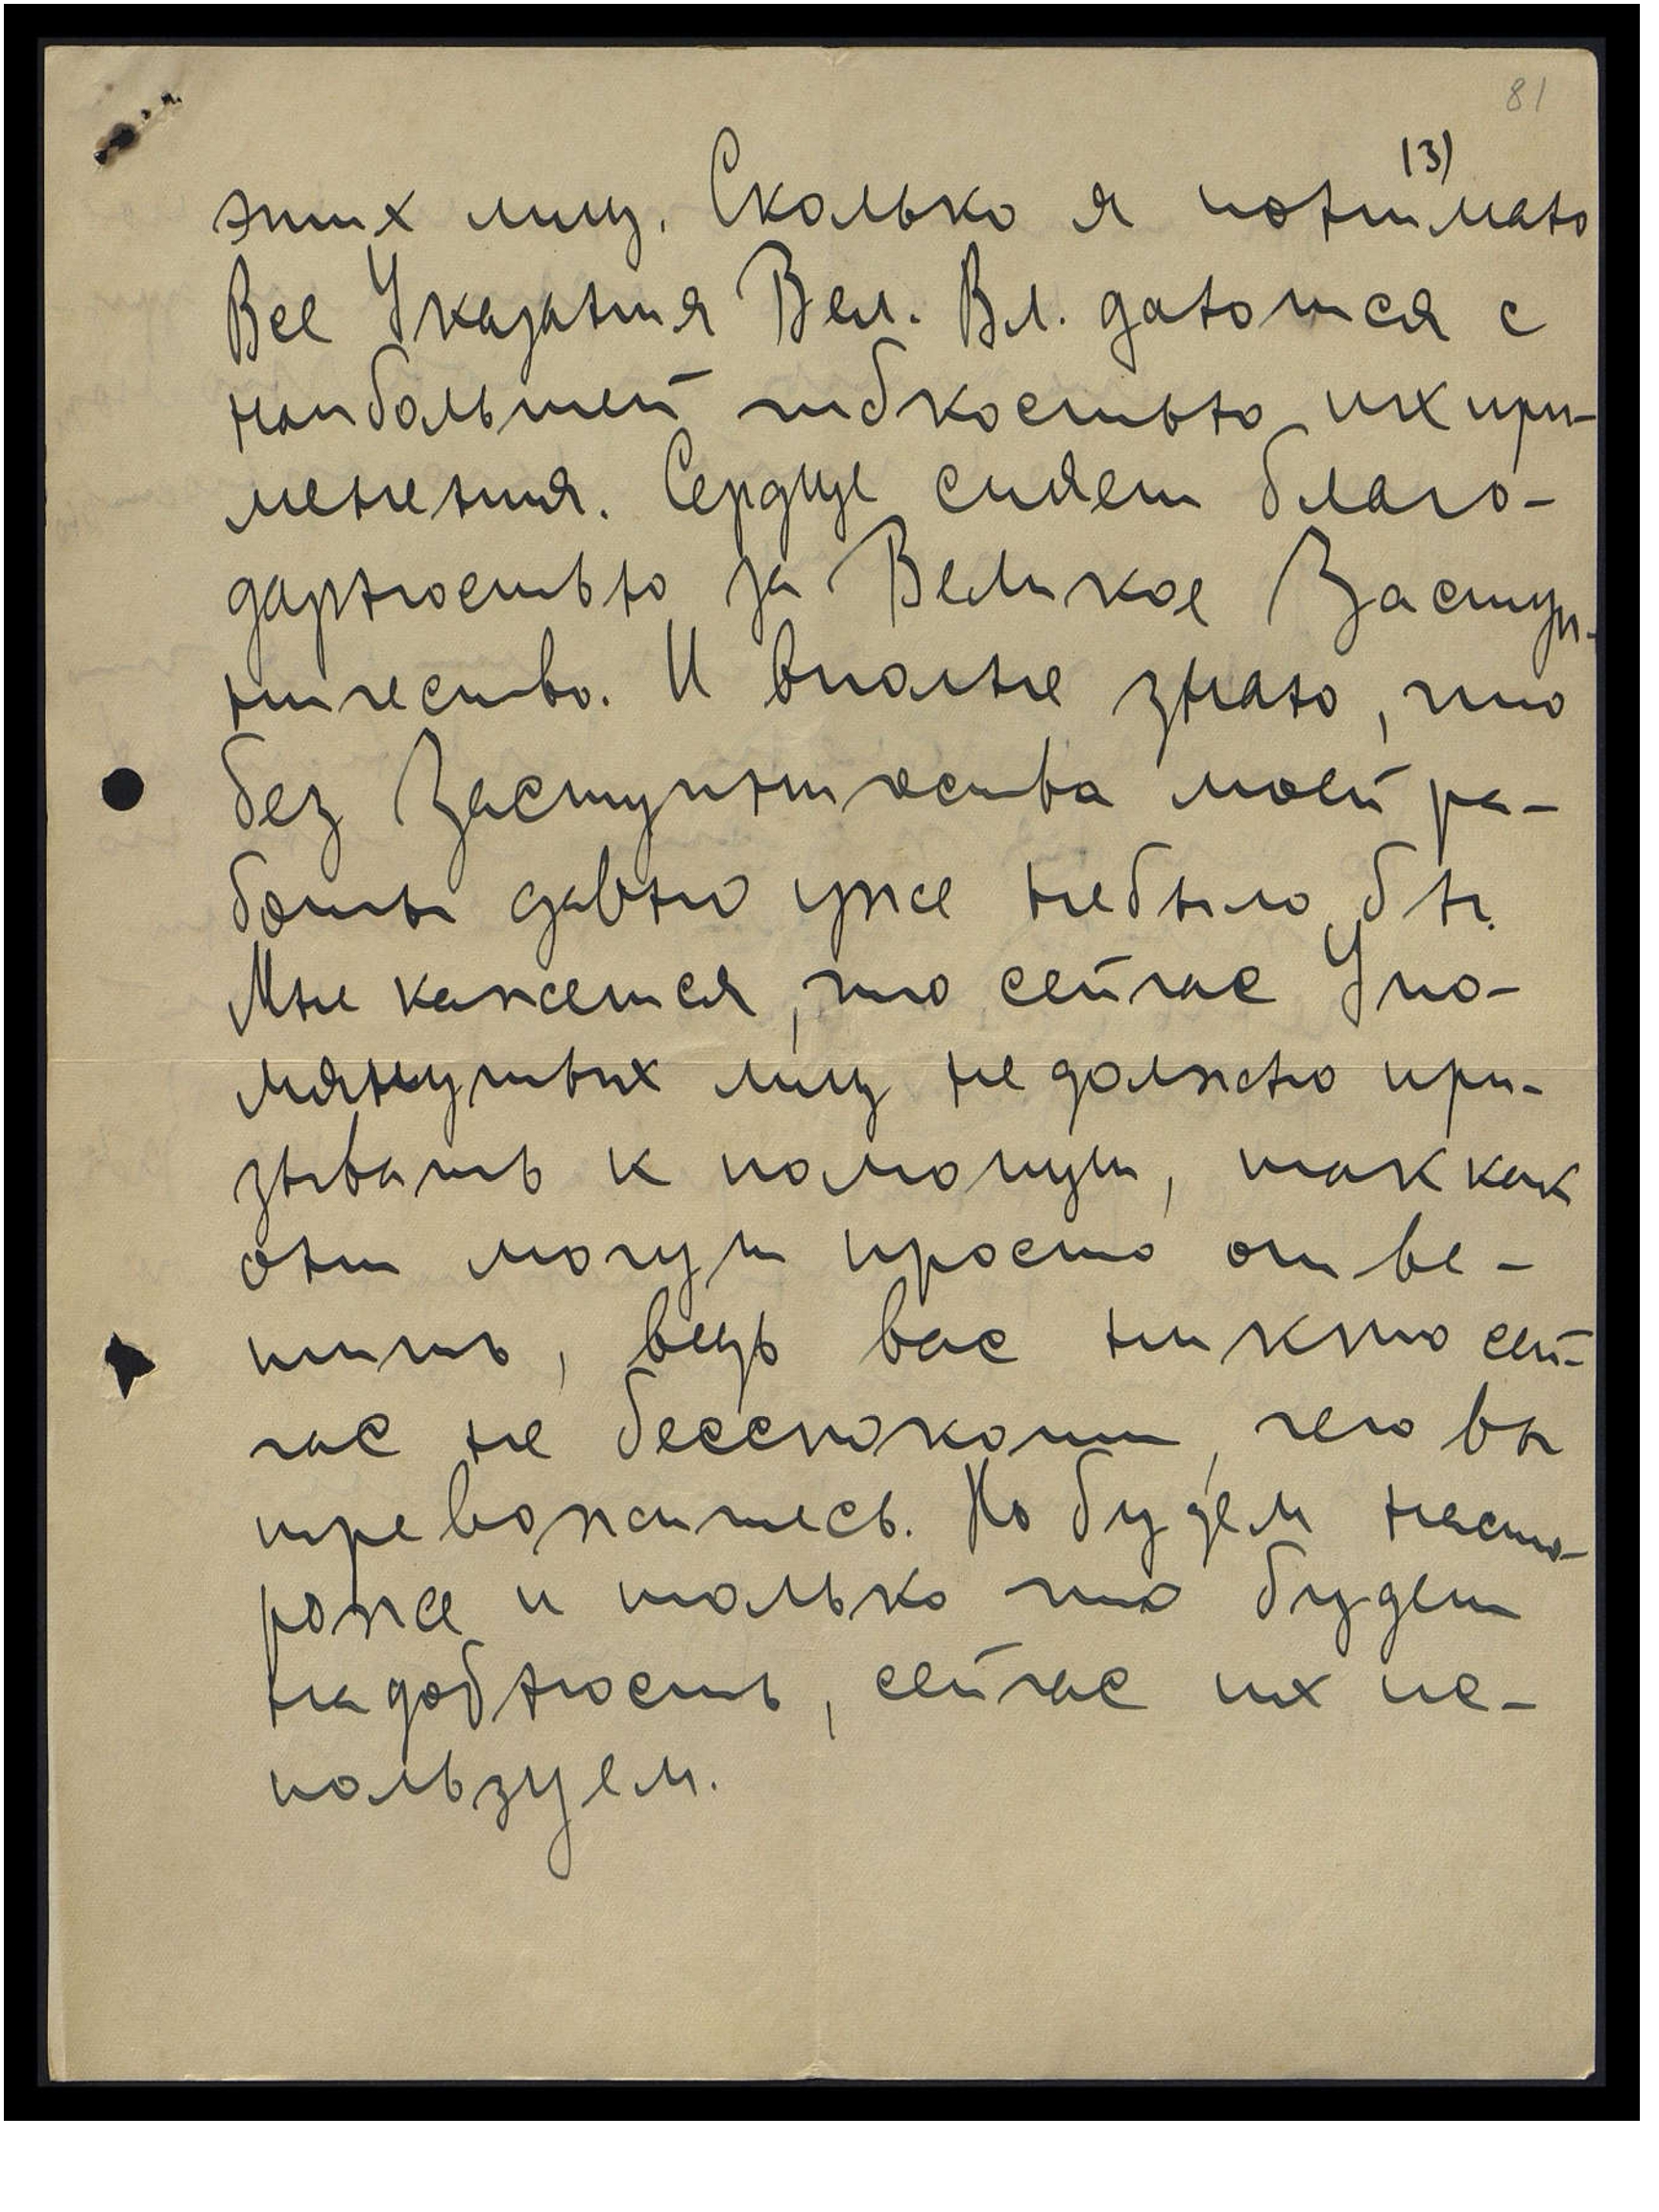 81
13)
этих лиц. Сколько я понимаю
Все Указания Вел. Вл. даются с
наибольшей гибкостью их при-
менения. Сердце сияет благо-
дарностью за Великое Заступ-
ничество. И вполне знаю, что
без Заступничества моей ра-
боты давно уже не было бы.
Мне кажется, что сейчас Упо-
мянутых лиц не должно при-
зывать к помощи, так как
они могут просто отве-
тить, ведь вас никто сей-
час не бесспокоит, чего вы
тревожитесь. Но будем насто-
роже и только что будет
надобность, сейчас их ис-
пользуем.